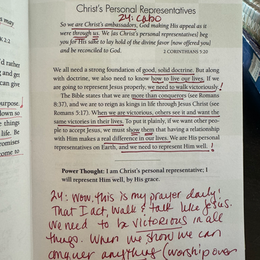 Christ's Personal Representatives
24: cabo
So we are Christ's ambassadors, God making His appeal as it
were through us. We [as Christ's personal representatives] beg
you for His sake to lay hold of the divine favor [now offered you]
and be reconciled to God.
2 CORINTHIANS 5:20
We all need a strong foundation of good, solid doctrine. But along
with doctrine, we also need to know how to live our lives. If we are
going to represent Jesus properly, we need to walk victoriously!
The Bible states that we are more than conquerors (see Romans
8:37), and we are to reign as kings in life through Jesus Christ (see
Romans 5:17). When we are victorious, others see it and want the
same victories in their lives. To put it plainly, if we want other peo-
ple to accept Jesus, we must show them that having a relationship
with Him makes a real difference in our lives. We are His personal
representatives on Earth, and we need to represent Him well.
Power Thought: I am Christ's personal representative; I
will represent Him well, by His grace.
24: Wow, this is my prayer daily!
That I act, walk & talk like Jesus.
We need to be victorious in all
things. When we show we can
conquer anything (worship over
K 2:2
g and
get
can
purpose
down so
things
life. Be
romises
come to